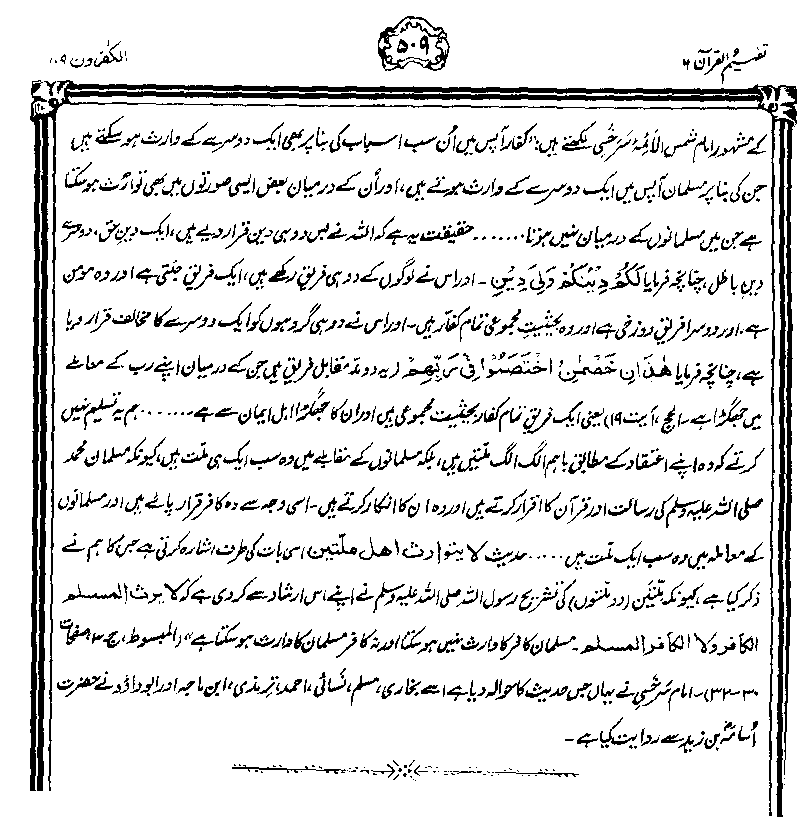 تفہیم القرآن ۶
۵۰۹
الکٰفرون ۱۰۹
کے مشہور امام شمس الائمہ سَرَخْسِی لکھتے ہیں: "کفار آپس میں اُن سب اسباب کی بنا پر بھی ایک دوسرے کے وارث ہو سکتے ہیں
جن کی بنا پر مسلمان آپس میں ایک دوسرے کے وارث ہوتے ہیں، اور اُن کے درمیان بعض ایسی صورتوں میں بھی توارُث ہو سکتا
ہے جن میں مسلمانوں کے درمیان نہیں ہوتا....... حقیقت یہ ہے کہ اللہ نے بس دو ہی دین قرار دیے ہیں، ایک دینِ حق، دوسرے
دینِ باطل، چنانچہ فرمایا لَكُمْ دِيْنُكُمْ وَلِيَ دِيْنِ ۔ اور اس نے لوگوں کے دو ہی فریق رکھے ہیں، ایک فریق جنّتی ہے اور وہ مومن
ہے، اور دوسرا فریق دوزخی ہے اور وہ بحیثیتِ مجموعی تمام کفّار ہیں۔ اور اس نے دو ہی گروہوں کو ایک دوسرے کا مخالف قرار دیا
ہے، چنانچہ فرمایا هٰذٰنِ خَصْمٰنِ اخْتَصَمُوْا فِیْ رَبِّهِمْ (یہ دو مدِّ مقابل فریق ہیں جن کے درمیان اپنے رب کے معاملے
میں جھگڑا ہے۔ الحج، آیت ۱۹) یعنی ایک فریق تمام کفار بحیثیت مجموعی ہیں اور ان کا جھگڑا اہلِ ایمان سے ہے ....... ہم یہ تسلیم نہیں
کرتے کہ وہ اپنے اعتقاد کے مطابق باہم الگ الگ ملّتیں ہیں، بلکہ مسلمانوں کے مقابلے میں وہ سب ایک ہی ملّت ہیں، کیونکہ مسلمان محمد
صلی اللہ علیہ وسلم کی رسالت اور قرآن کا اقرار کرتے ہیں اور وہ ان کا انکار کرتے ہیں۔ اسی وجہ سے وہ کافر قرار پائے ہیں اور مسلمانوں
کے معاملہ میں وہ سب ایک ملّت ہیں ..... حدیث لا يتوارث اهل ملّتين اسی بات کی طرف اشارہ کرتی ہے جس کا ہم نے
ذکر کیا ہے، کیونکہ ملّتَین (دو ملّتوں) کی تشریح رسول اللہ صلی اللہ علیہ وسلم نے اپنے اس ارشاد سے کر دی ہے کہ لا يرث المسلم
الكافر ولا الكافر المسلم ۔ مسلمان کافر کا وارث نہیں ہو سکتا اور نہ کافر مسلمان کا وارث ہو سکتا ہے" (المبسوط، ج ۳۰ صفحات
۳۰-۳۲)۔ امام سَرَخْسِی نے یہاں جس حدیث کا حوالہ دیا ہے اسے بخاری، مسلم، نَسائی، احمد، ترمذی، ابن ماجہ اور ابو داؤد نے حضرت
اُسامہؓ بن زید سے روایت کیا ہے۔